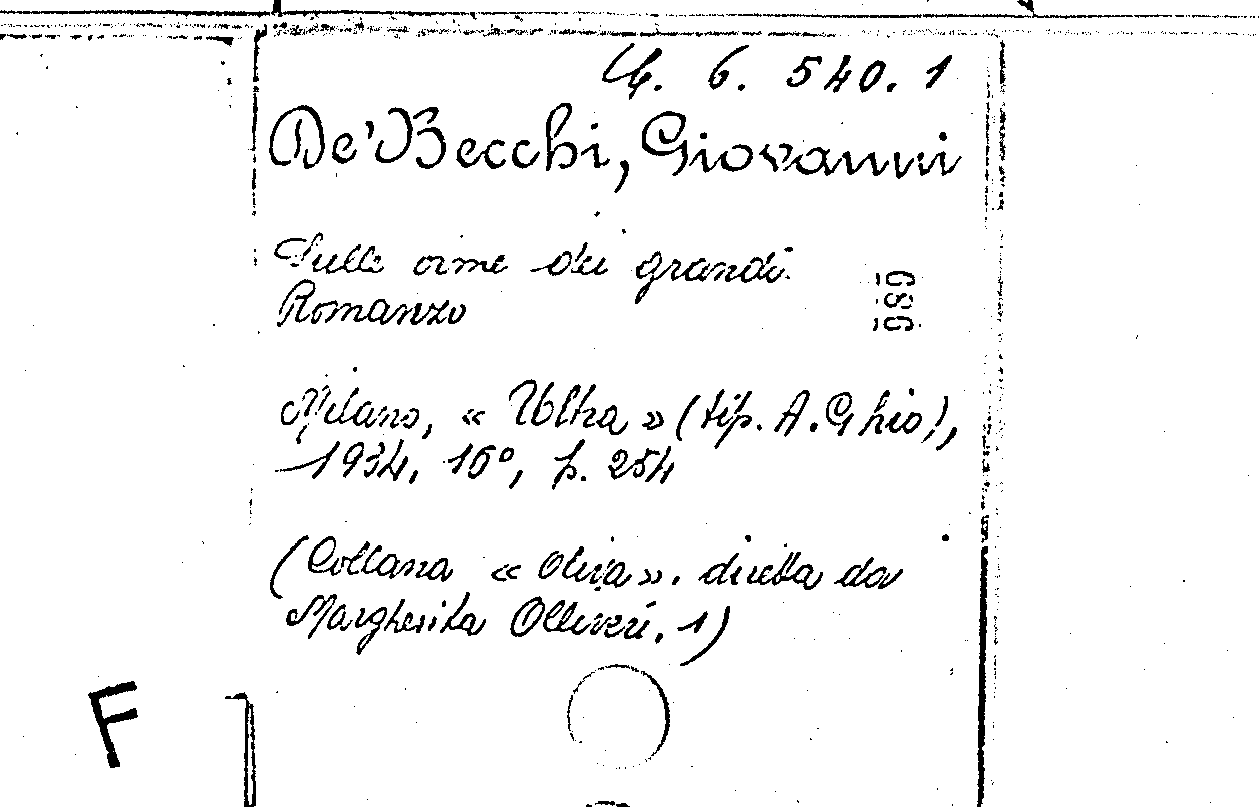 6. 540. 1
De' Becchi, Giovanni
Sulle orme dei grandi.
Romanzo
989
Milano, « Ultra » (tip. A. Ghio),
1934, 16°, p. 254
(Collana « Oliva ». diretta da
Margherita Olliveri. 1)
F